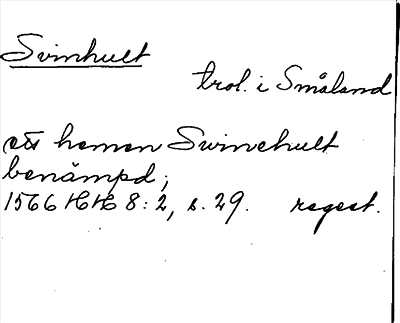 Svinhult
trol. i Småland
ett heman Swinehult
benämpd;
1566 HH 8:2, s. 29. regest.